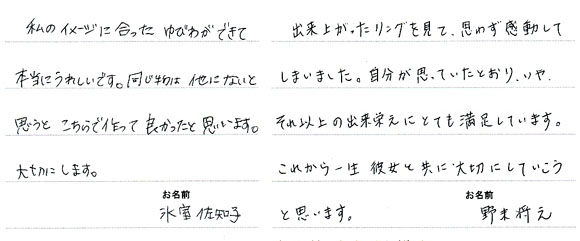 私のイメージに合った ゆびわができて
本当にうれしいです。同じ物は 他にないと
思うと こちらで作って 良かったと思います。
大切にします。
お名前
氷室 佐知子
出来上がったリングを見て、思わず感動して
しまいました。自分が思っていたとおり、いや、
それ以上の出来栄えにとても満足しています。
これから一生 彼女と共に 大切にしていこう
と思います。
お名前
野末 将元